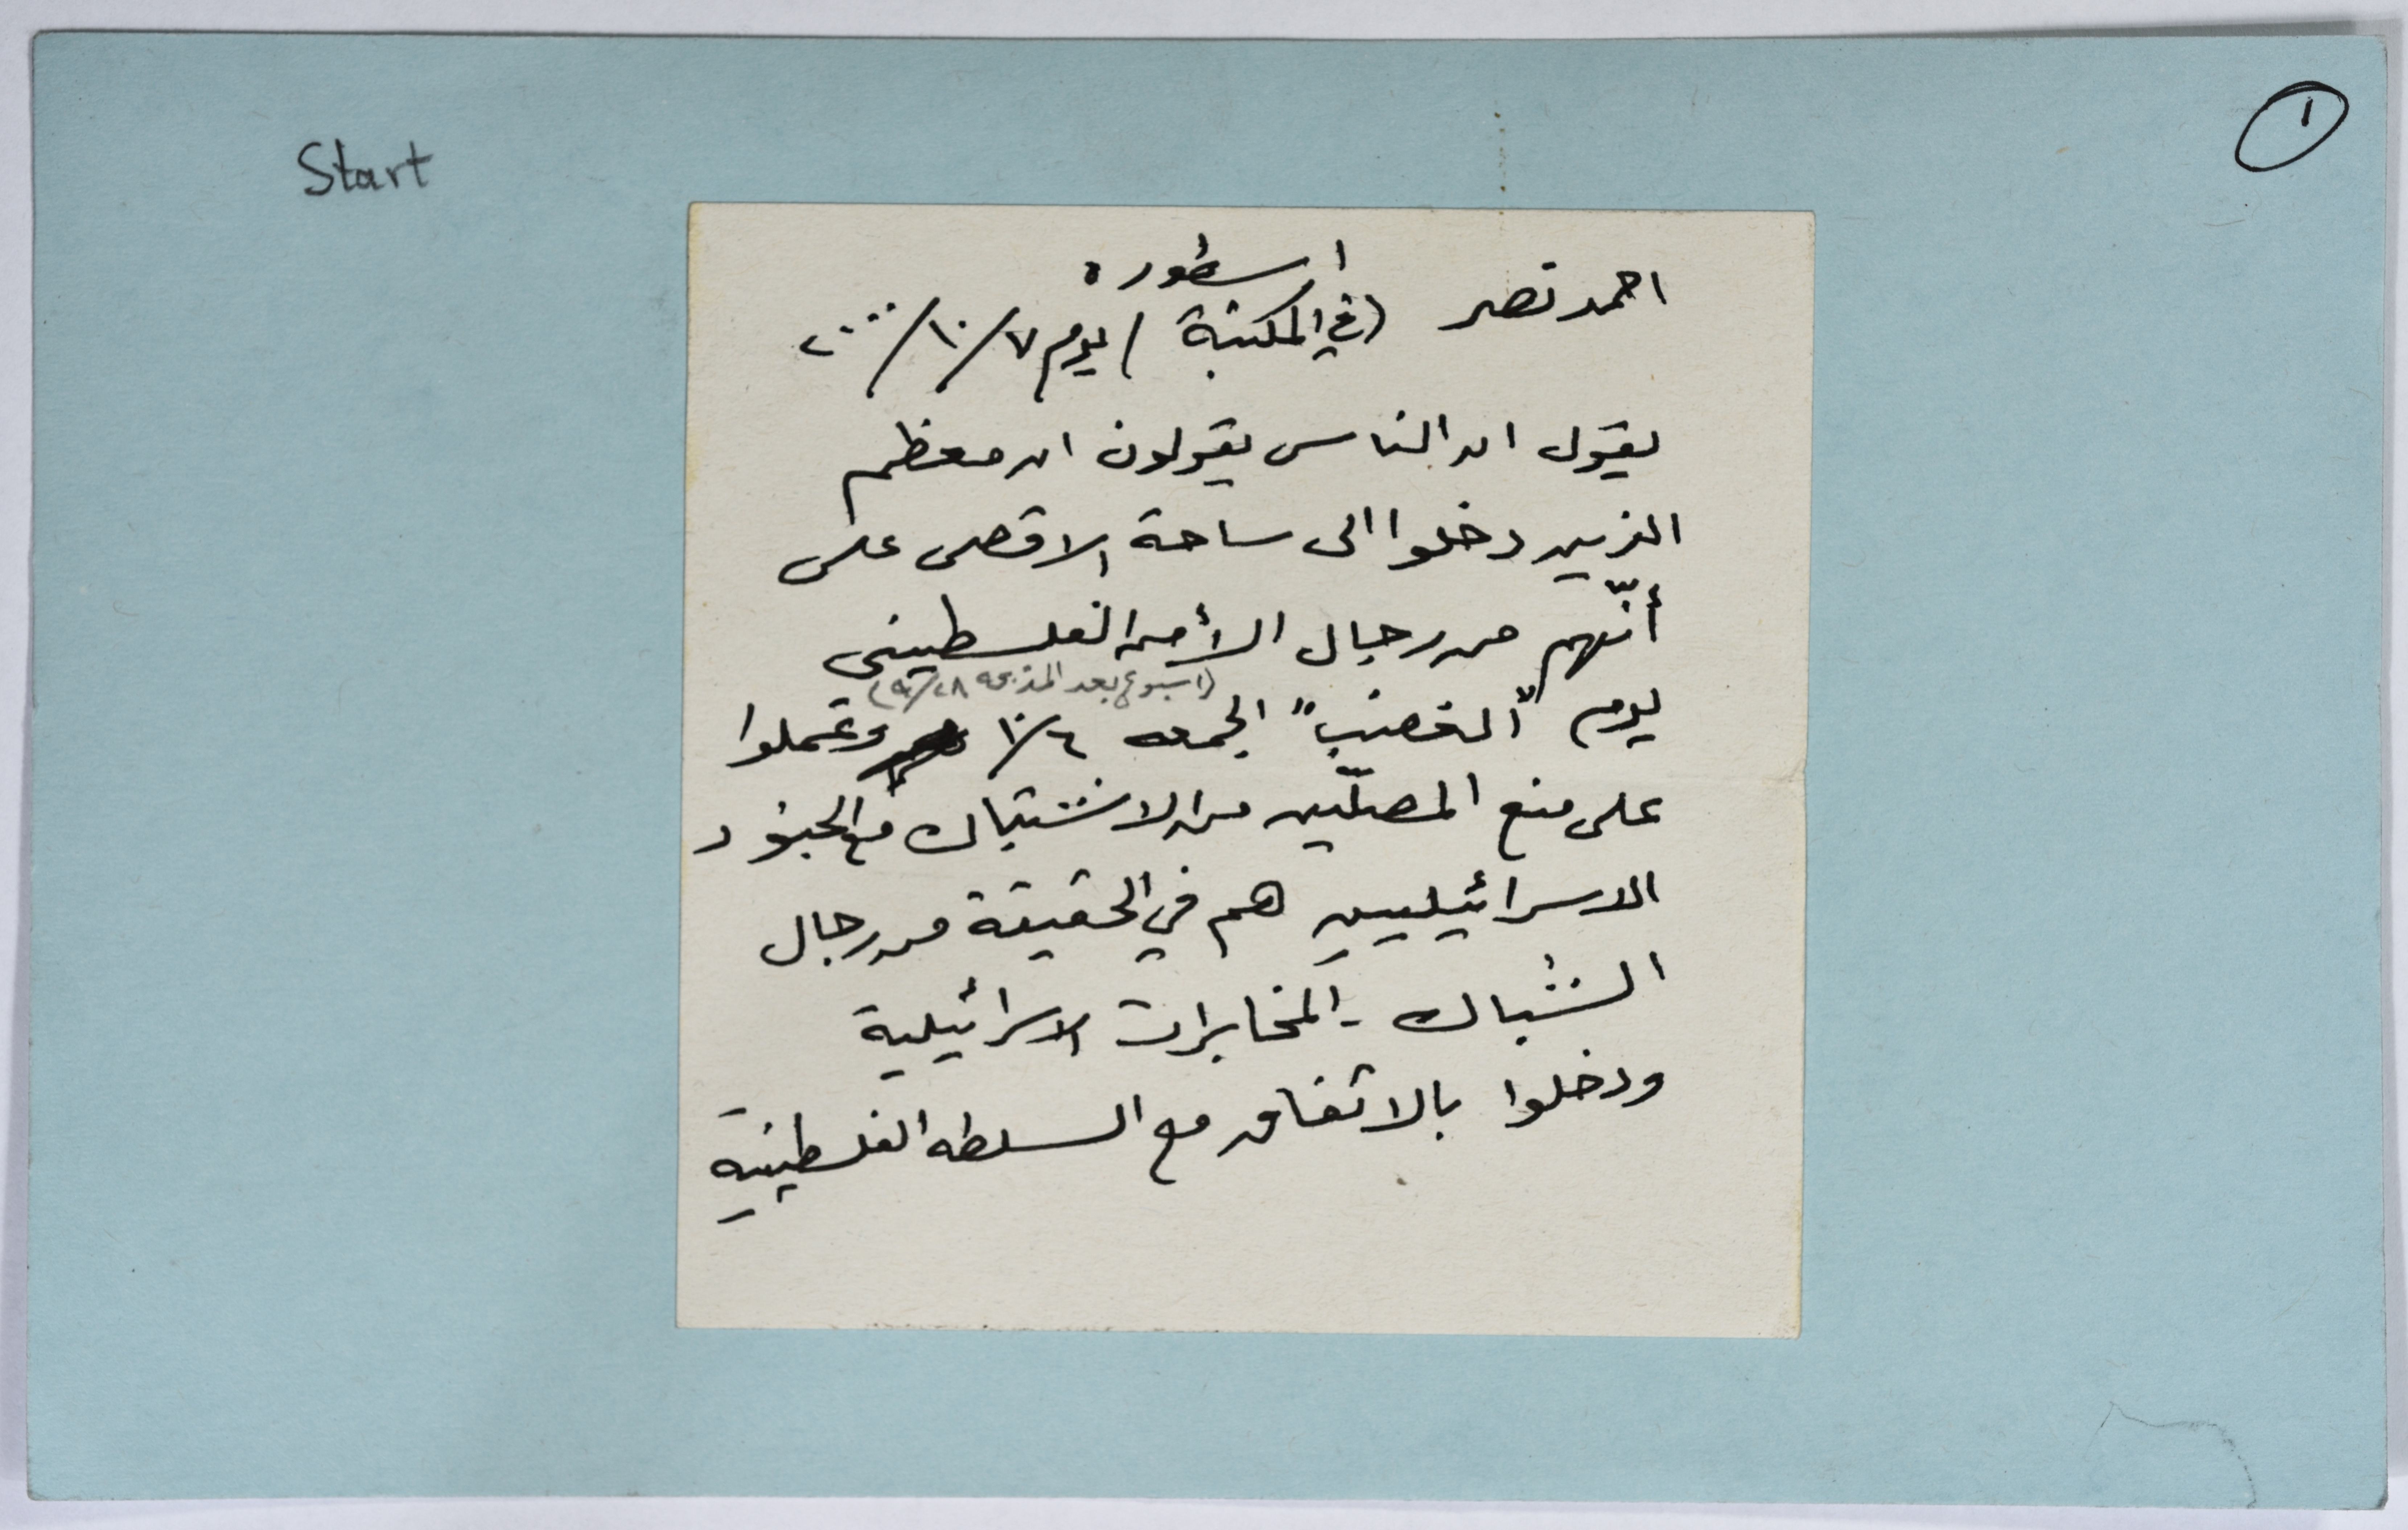 Start
١
اسطوره
احمد نصر (في المكتبة) يوم ٧/١٠/٢٠٠٠
يقول ان الناس يقولون ان معظم
الذين دخلوا الى ساحة الاقصى على
أنّهم من رجال الأمن الفلسطيني
(اسبوع بعد المذبحه ٢٨/٩)
يوم "الغضب" الجمعه ٦/١٠ وعملوا
على منع المصلّين من الاشتباك مع الجنود
الاسرائيليين هم في الحقيقة من رجال
الشباك - المخابرات الاسرائيلية
ودخلوا بالاتفاق مع السلطه الفلسطينية